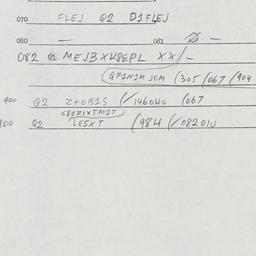 070 FLEJ Q2 D1FLEJ
060 — 081 Ø —
082 Q2 MEJ3XK8EPL XX/-
QF1N1MJOM (305/067/904
900 Q2 Z+0815 (/146040 (067
C81ZIXTM1T
900 Q2 LE5XT (984 (/082010